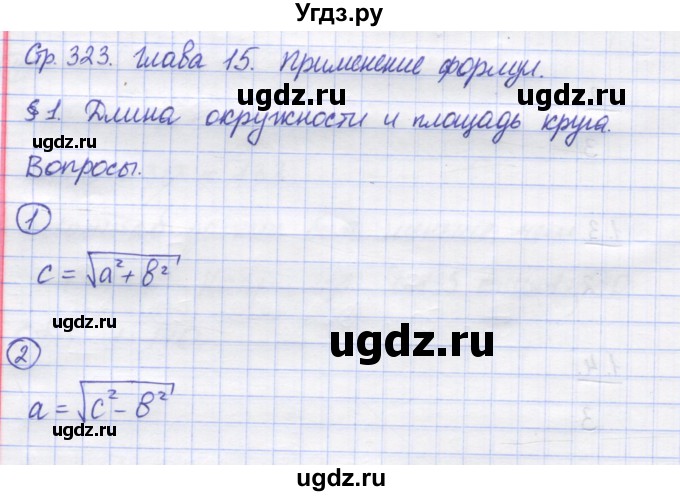 Угдз.ру
Стр. 323. Глава 15. Применение формул.
ugdz.ru ugdz.ru
§1. Длина окружности и площадь круга.
ugdz.ru
Вопросы.
1
c = √a² + b²
ugdz.ru
ugdz.ru
2
a = √c² - b²
ugdz.ru
ugdz.ru